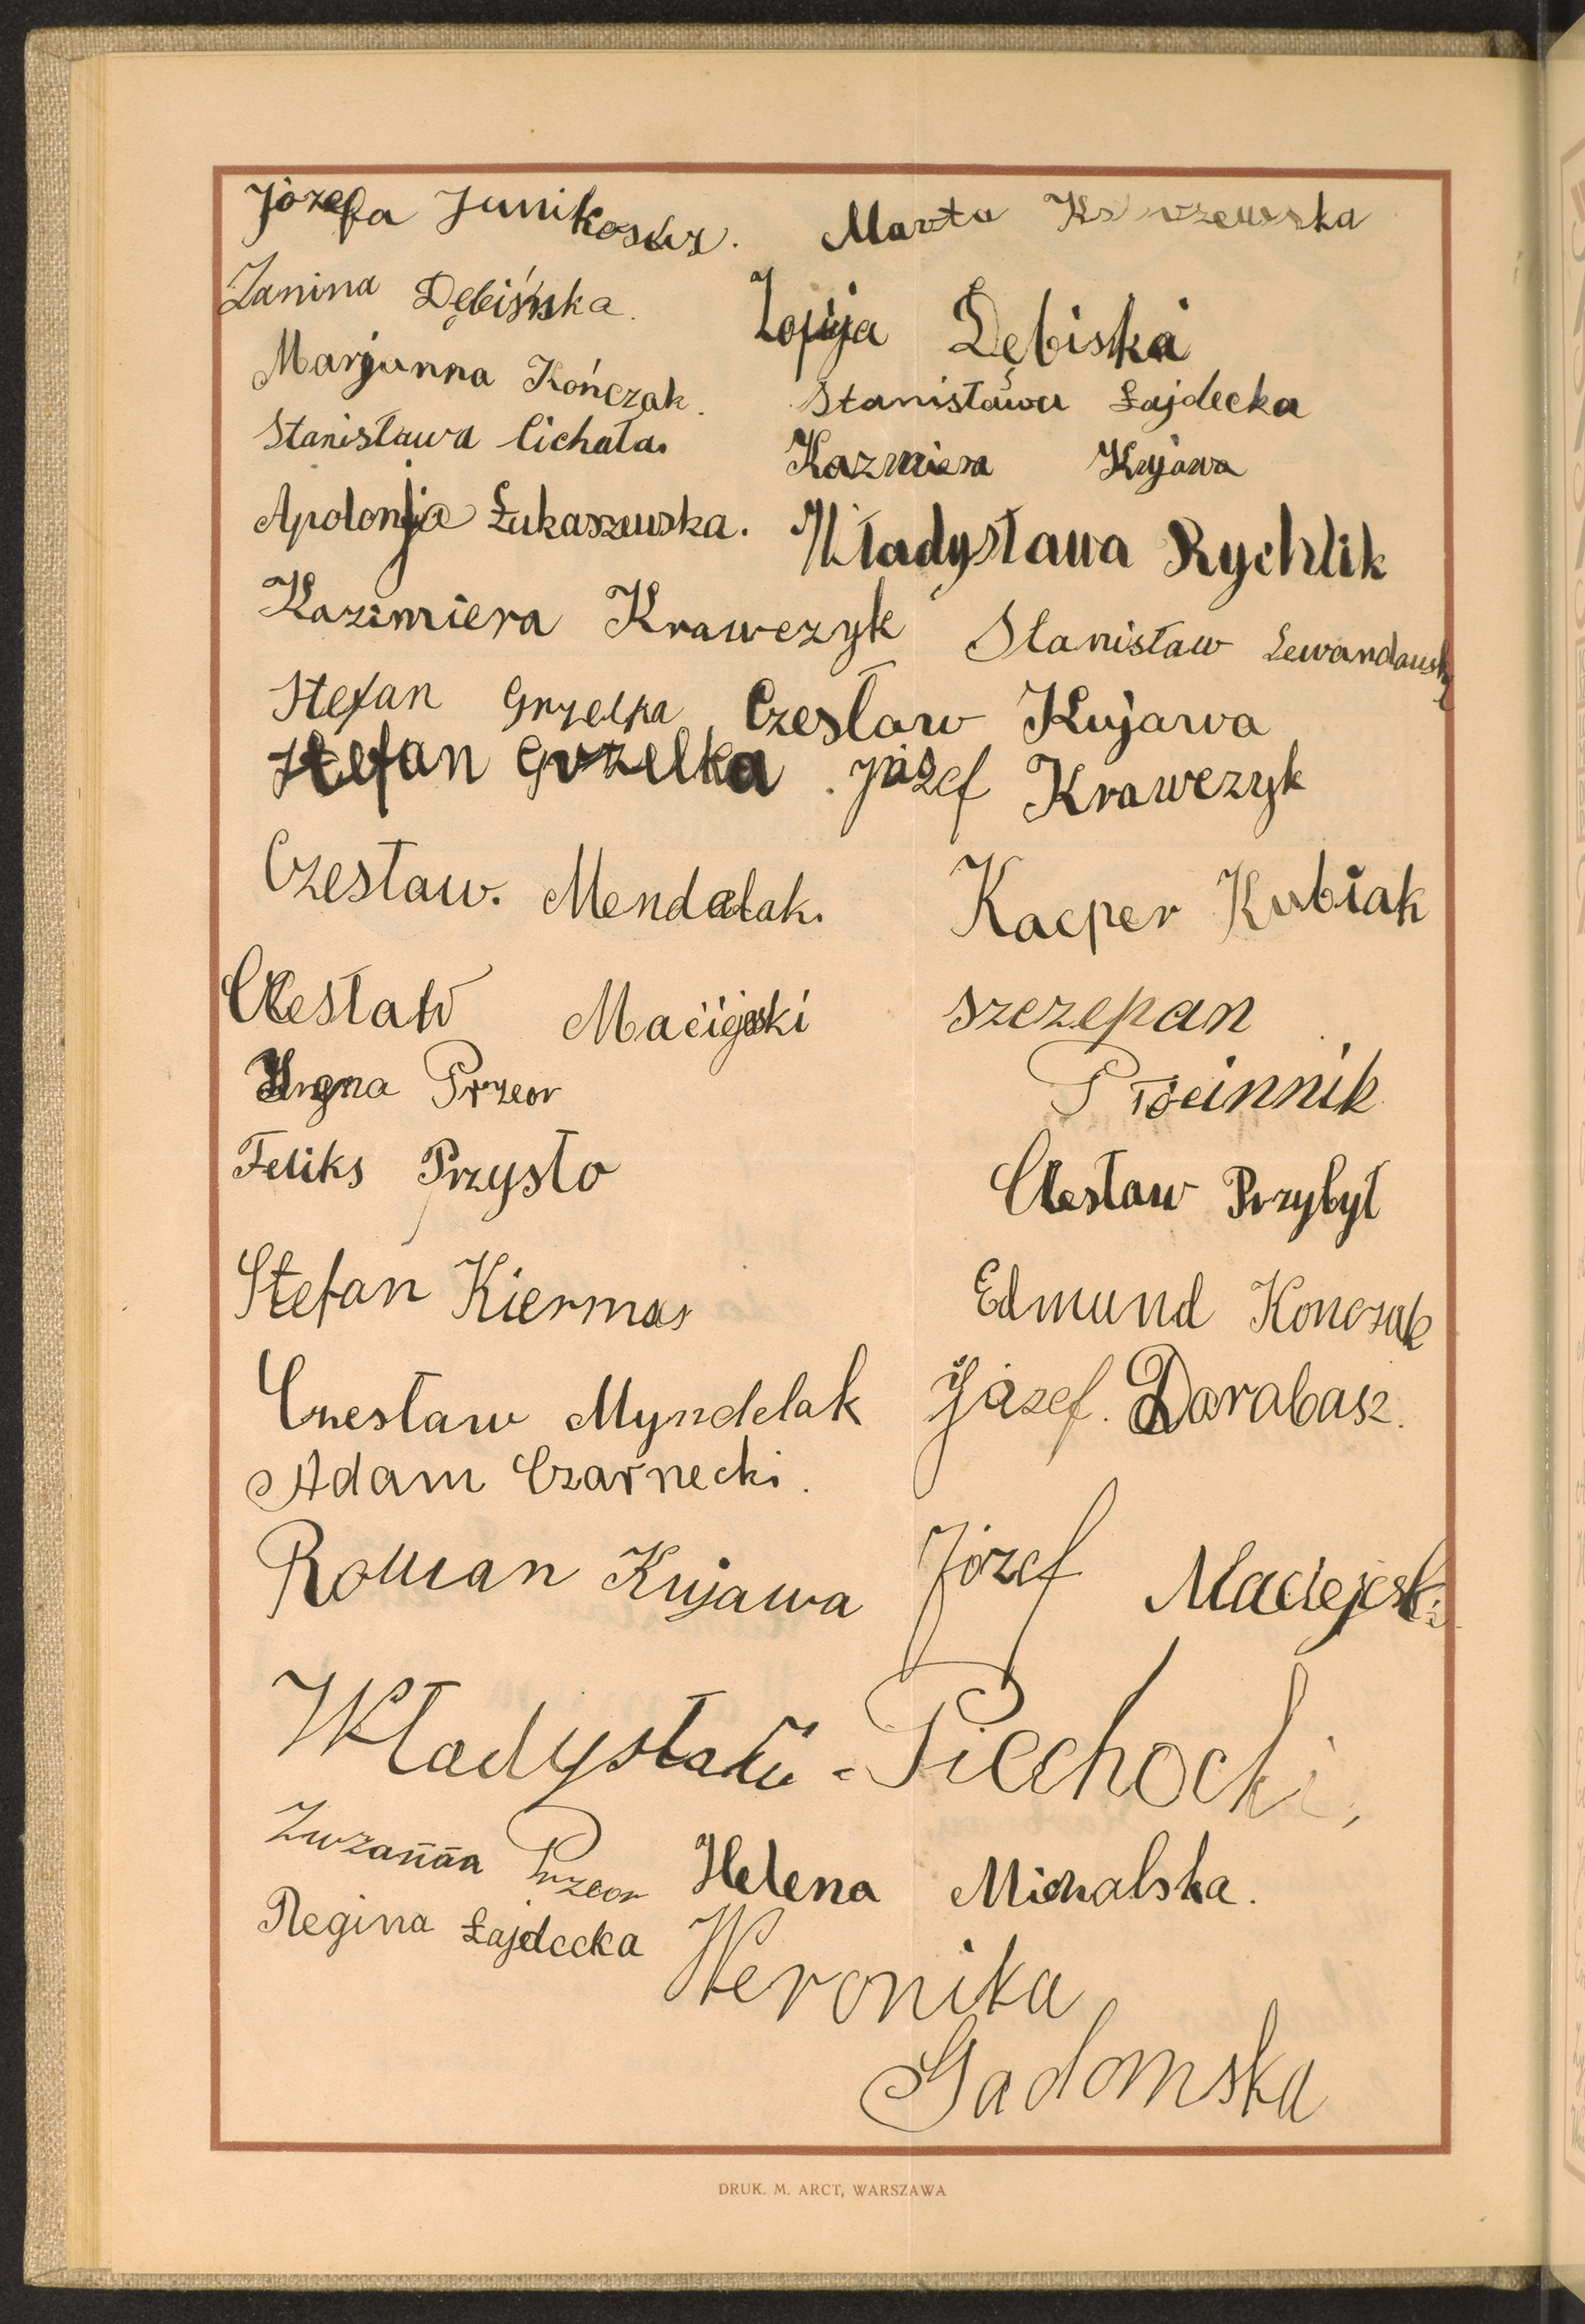 Józefa Marta
Janina Dębińska. Zofija Dębiska
Marjanna Kończak. Stanisława Łajdecka
Stanisława Cichała. Kazmiera Kujawa
Apolonja Łukaszewska. Władysława Rychlik
Kazimiera Krawczyk Stanisław Lewandowski
Stefan Grzelka Czesław Kujawa
Stefan Grzelka. Józef Krawczyk
Czesław. Mendalak. Kacper Kubiak
Czesław Maciejeski Szczepan
Przeor Płócinnik
Feliks Przysło Czesław Przybył
Stefan Kiermas Edmund Konczak
Czesław Myndelak Józef. Darabasz.
Adam Czarnecki.
Roman Kujawa Józef Maciejeski
Władysław - Piechocki,
Zuzanna Przeor Helena Michalska.
Regina Łajdecka Weronika
Gadomska
DRUK. M. ARCT, WARSZAWA